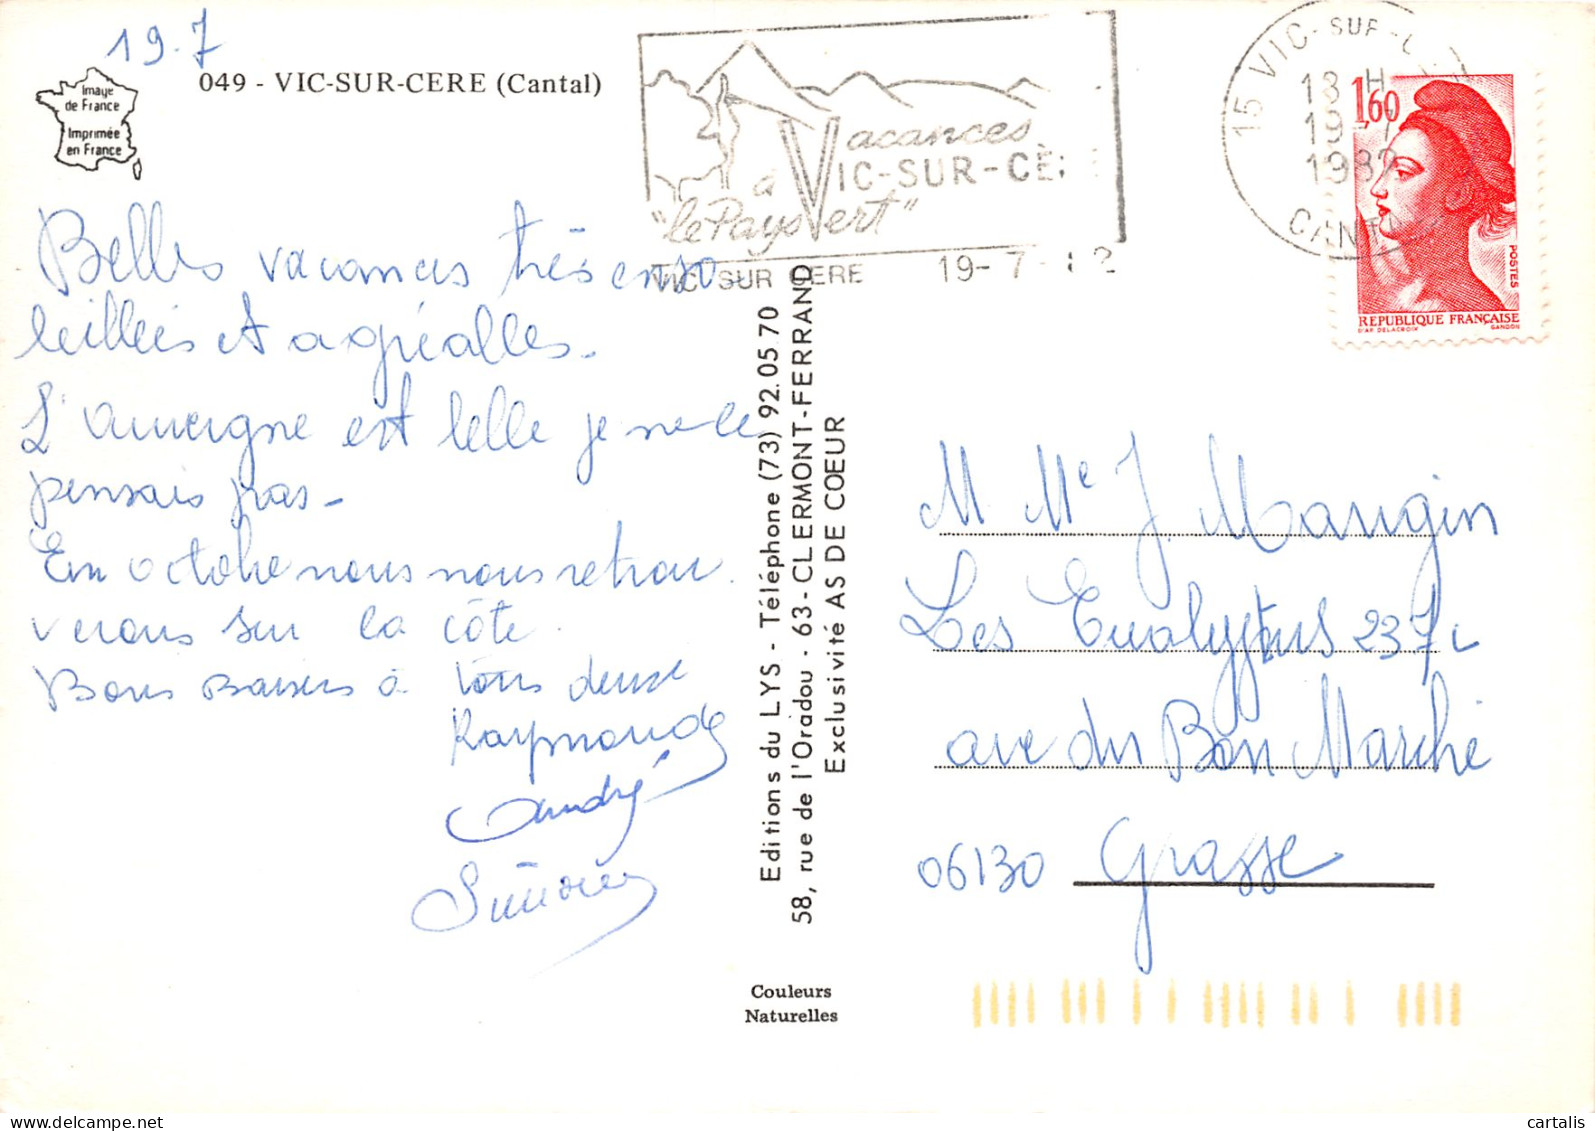 19.7
049 - VIC-SUR-CERE (Cantal)
Image
de France
Imprimée
en France
Belles vacances très enso
leillées et agréables.
L'auvergne est belle je ne le
pensais pas -
En octobre nous nous retrou
verons sur la côte.
Bons Baisers à tous deux
Raymonde
André
Vacances
à VIC-SUR-CÈ
"le Pays Vert"
VIC SUR CERE 19-7- 2
15 VIC-SUR-C
18 H
19-7
1982
CANT
1,60
POSTES
REPUBLIQUE FRANÇAISE
D'AP. DELACROIX GANDON
Editions du LYS - Téléphone (73) 92.05.70
58, rue de l'Oradou - 63-CLERMONT-FERRAND
Exclusivité AS DE CŒUR
M Me J. Mangin
Les Eucalyptus
ave du Bon Marché
06130 Grasse
Couleurs
Naturelles
cartalis delcampe.net